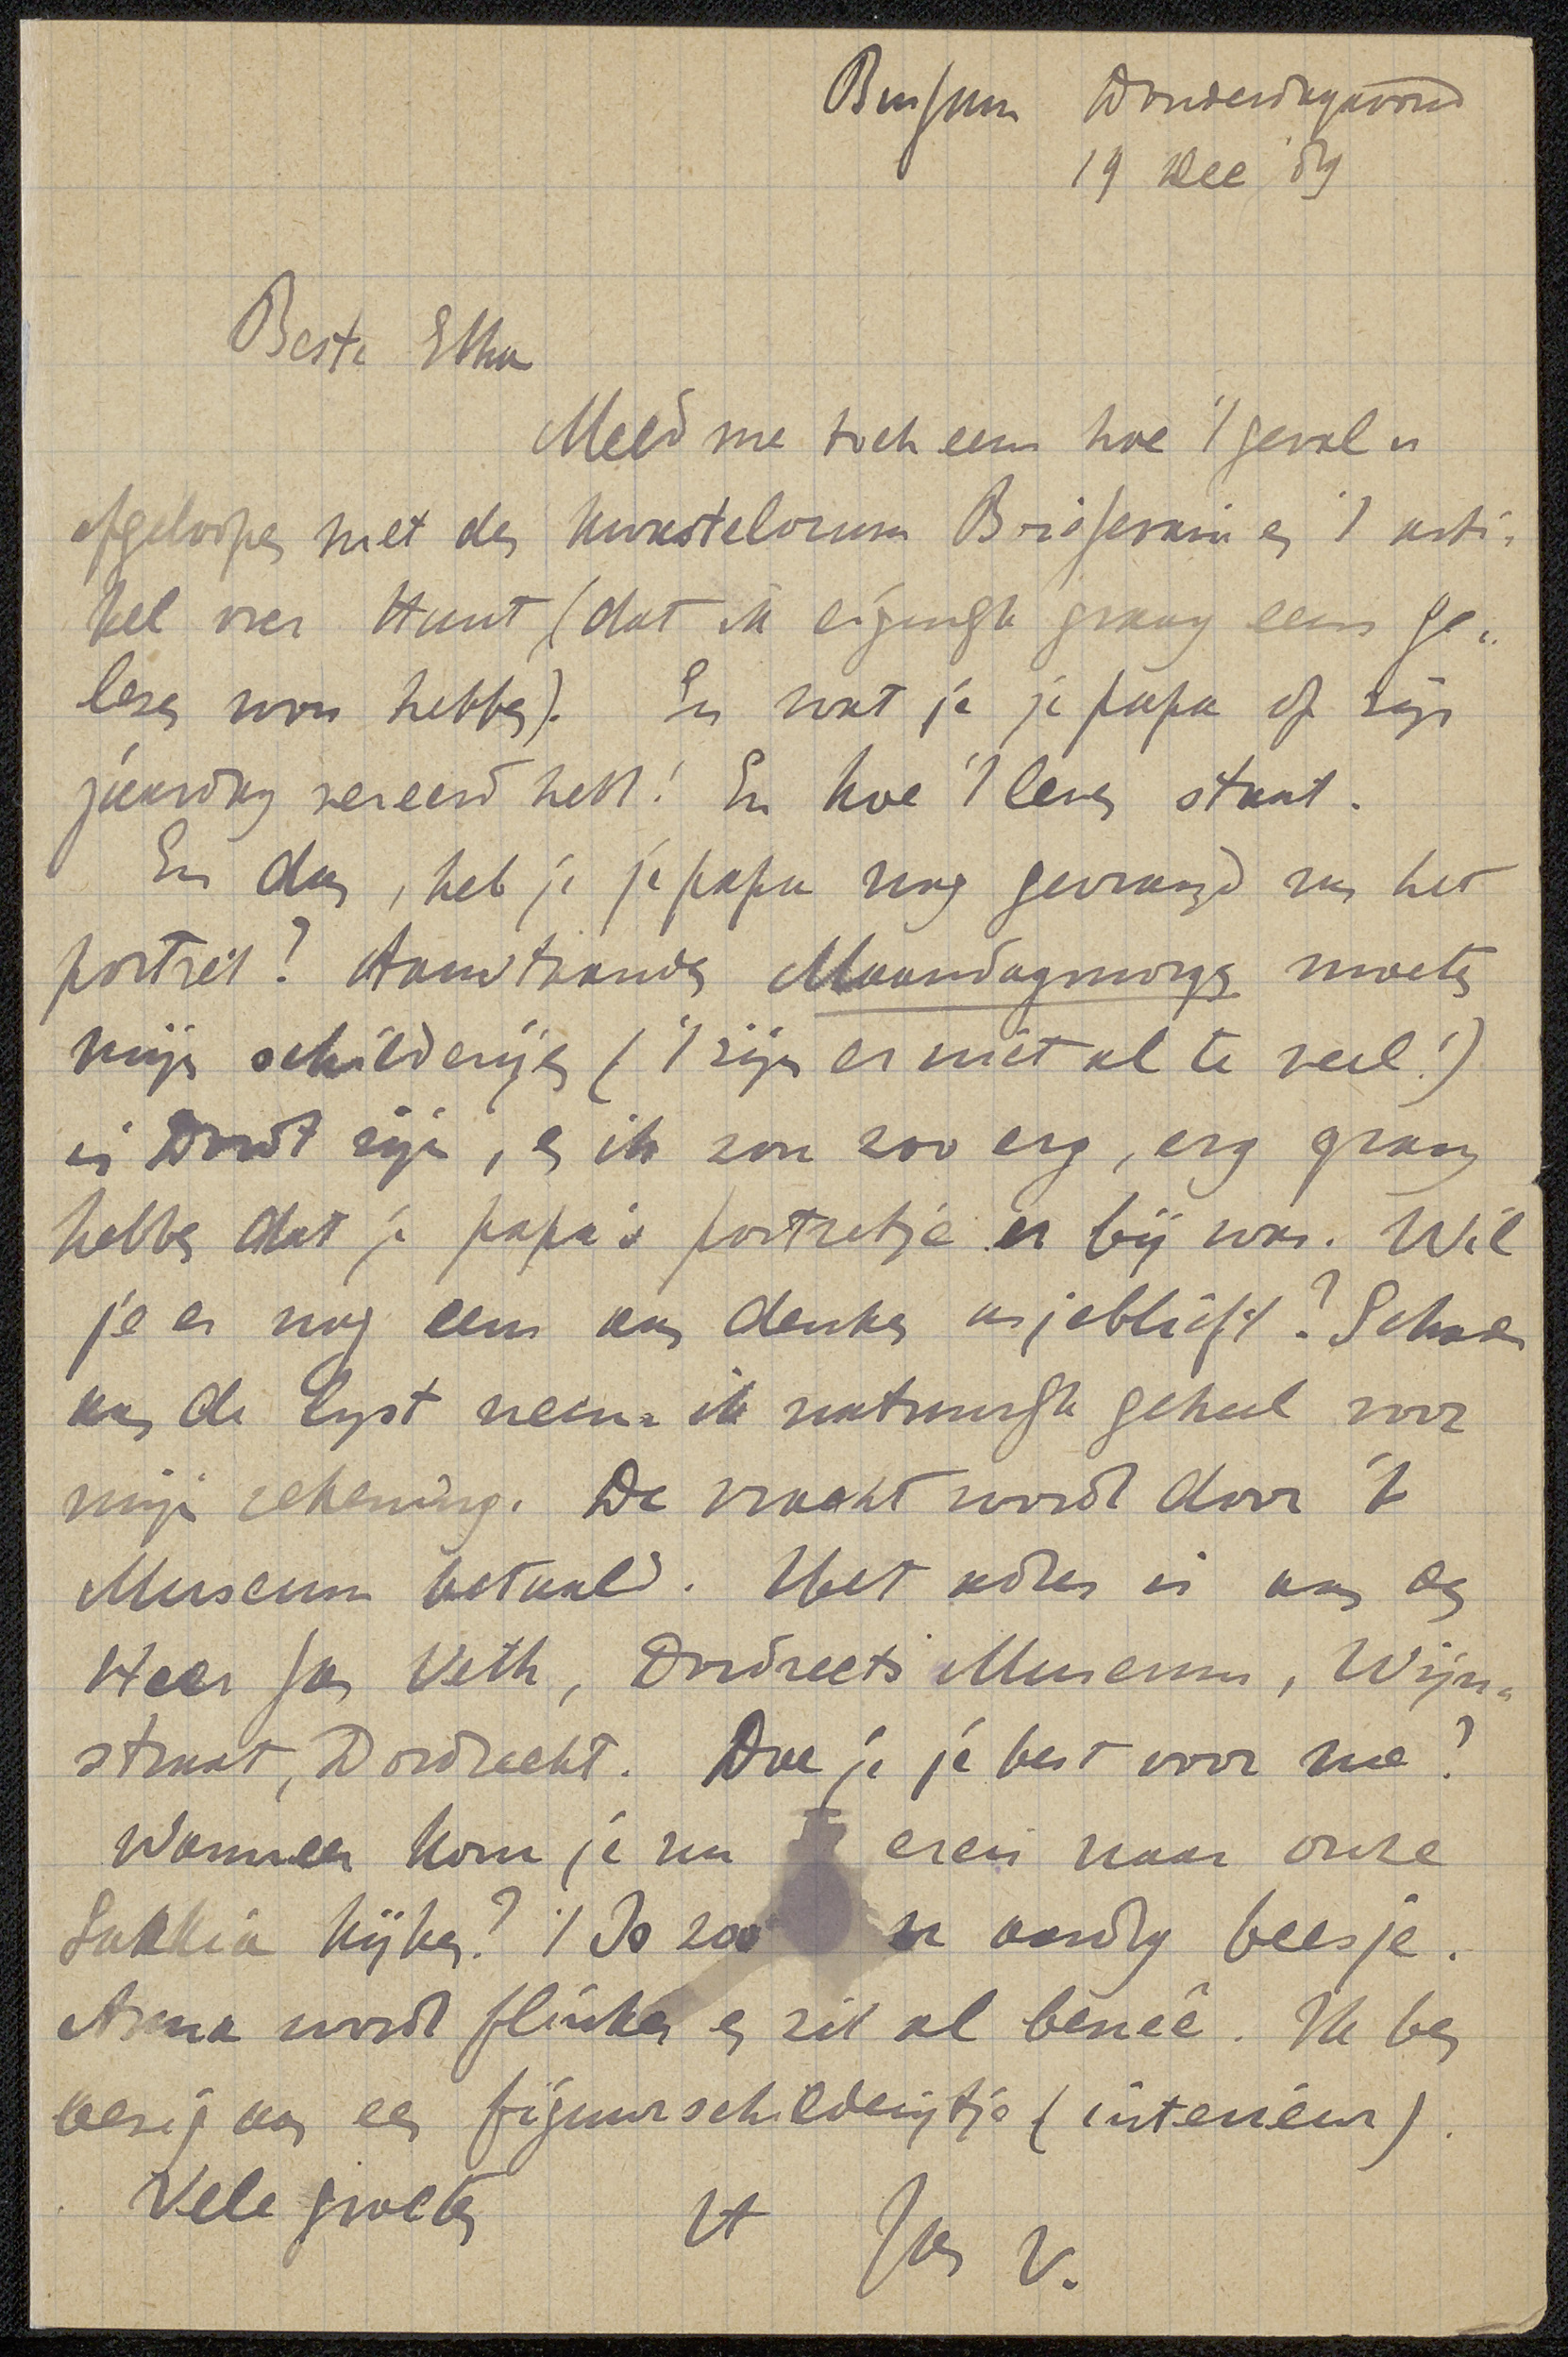 Bussum Donderdagavond
19 Dec '89
Beste Etha
Meld me toch eens hoe 't geval is
afgeloopen met den kwastelorum Boissevain en 't arti-
kel over Hunt (dat ik eigenlijk graag eens ge-
lezen wou hebben). En wat je je papa op zijn
jaardag vereerd hebt! En hoe 't leven staat.
En dan, heb je je papa nog gevraagd van het
portret? Aanstaanden Maandagmorgen moeten
mijn schilderijen ('t zijn er niet al te veel!)
in Dordt zijn, en ik zou zoo erg, erg graag
hebben dat je papa's portretje er bij was. Wil
je er nog eens aan denken asjeblieft? Schade
aan de lijst neem ik natuurlijk geheel voor
mijn rekening. De vracht wordt door 't
Museum betaald. Het adres is aan den
Heer Jan Veth, Dordrechts Museum, Wijn-
straat, Dordrecht. Doe je je best voor me?
Wanneer kom je nu even naar onze
Saskia kijken? 't Is zoo 'n aardig beesje.
Anna wordt flinker en zit al beneê. Ik ben
bezig aan een figuurschilderijtje (interieur).
Vele groeten tt Jan V.